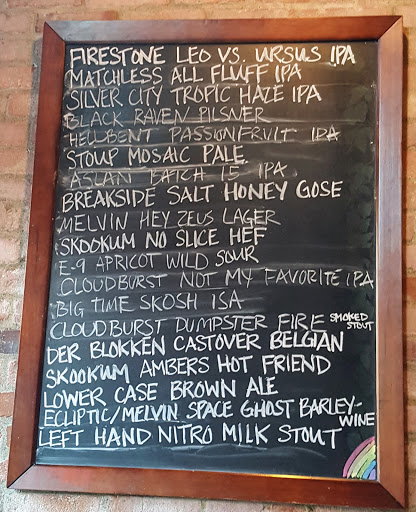 FIRESTONE LEO VS. URSUS IPA
MATCHLESS ALL FLUFF IPA
SILVER CITY TROPIC HAZE IPA
BLACK RAVEN PILSNER
HELLBENT PASSIONFRUIT IPA
STOUP MOSAIC PALE
ASLAN BATCH 15 IPA
BREAKSIDE SALT HONEY GOSE
MELVIN HEY ZEUS LAGER
SKOOKUM NO SLICE HEF
E-9 APRICOT WILD SOUR
CLOUDBURST NOT MY FAVORITE IPA
BIG TIME SKOSH ISA
CLOUDBURST DUMPSTER FIRE SMOKED
STOUT
DER BLOKKEN CASTOVER BELGIAN
SKOOKUM AMBERS HOT FRIEND
LOWER CASE BROWN ALE
ECLIPTIC/MELVIN SPACE GHOST BARLEY-
WINE
LEFT HAND NITRO MILK STOUT